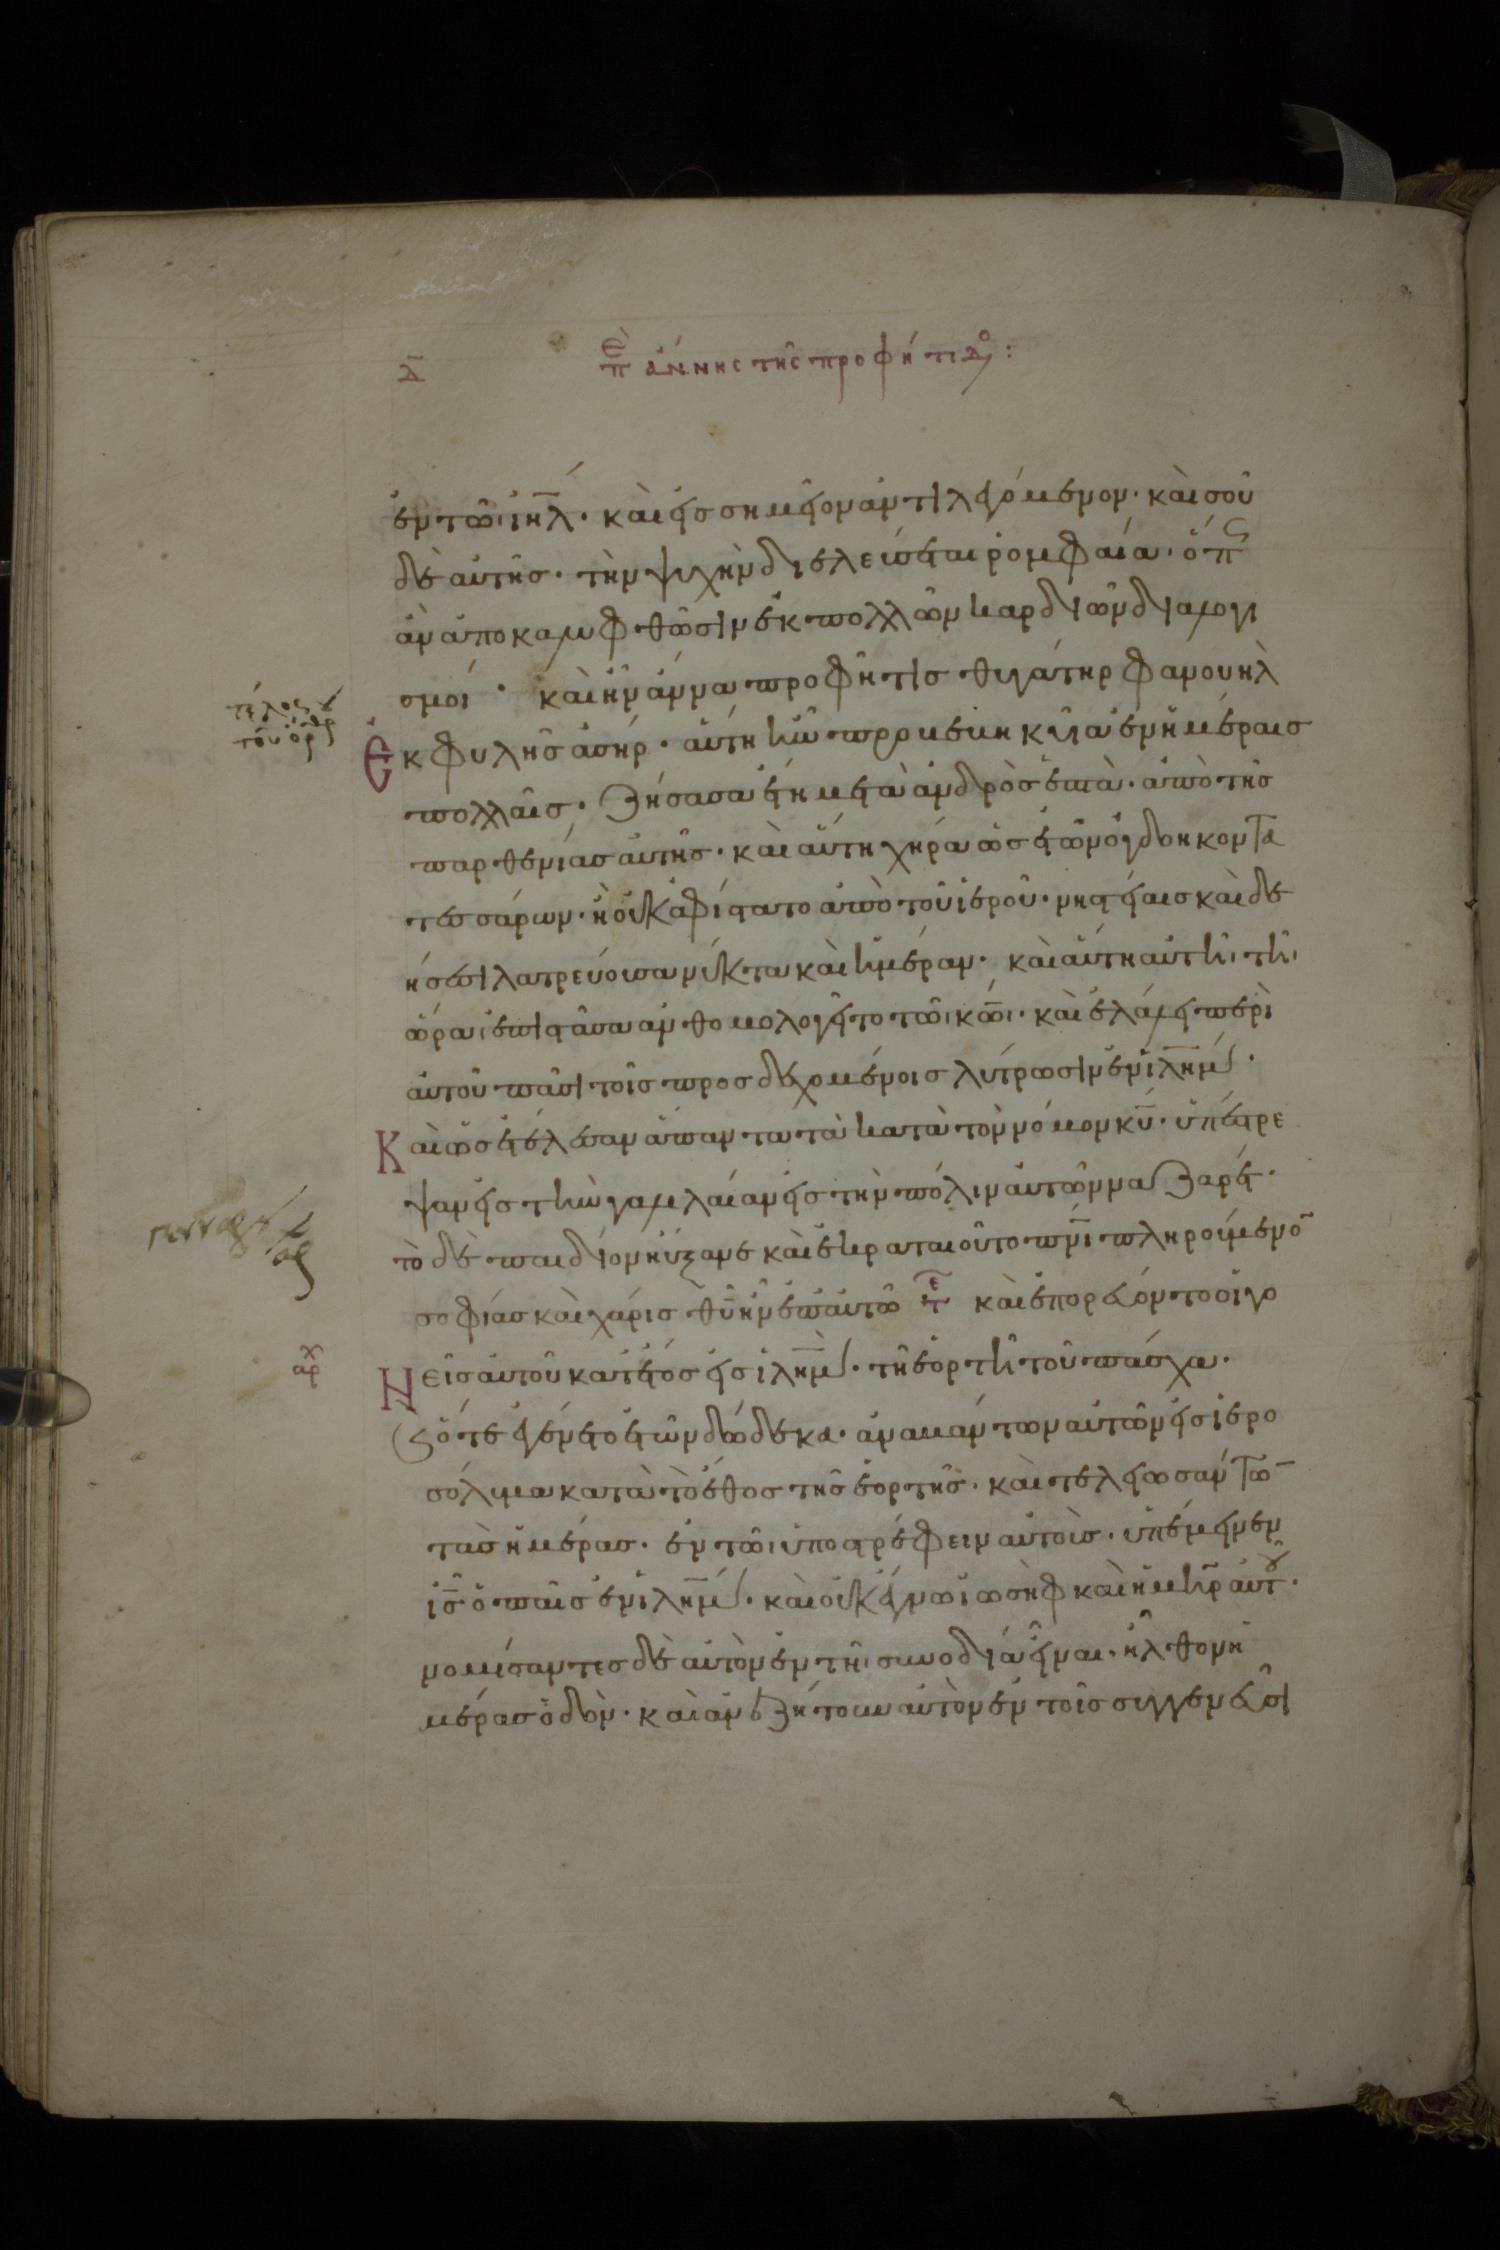 δ̄ ἐπὶ ἄννης τῆς προφήτιδο:
ἐν τῶ ἰη̄λ· καὶ εἰς σημεῖον ἀντιλεγόμενον· καὶ σοῦ
δὲ αὐτῆς· τὴν ψυχὴν διελεύσεται ρομφαία· ὅπς
ἂν ἀποκαλυφθῶσιν ἐκ πολλῶν καρδιῶν διαλογι
σμοί· καὶ ἦν ἄννα προφῆτις θυγάτηρ φανουὴλ
ἐκ φυλῆς ἀσήρ· αὕτη προβεβηκυῖα ἐν ἡμέραις
τέλος
πολλαῖς· ζήσασα ἔτη μετὰ ἀνδρὸς ἑπτὰ· ἀπὸ τῆς
παρθενίας αὐτῆς· καὶ αὕτη χήρα ὡς ἐτῶν ὀγδοηκοντα
τεσσάρων· ἣ οὐκ ἀφίστατο ἀπὸ τοῦ ἱεροῦ· νηστείαις καὶ δε
ήσεσι λατρεύουσα νύκτα καὶ ἡμέραν· καὶ αὕτη αὐτῆ τῆ
ὥρα ἐπιστᾶσα ἀνθομολογεῖτο τῶ κω̄· καὶ ἐλάλει περὶ
αὐτοῦ πᾶσι τοῖς προσδεχομένοις λύτρωσιν ἐν ἰλη̄μ·
Καὶ ὡς ἐτέλεσαν ἅπαντα τὰ κατὰ τὸν νόμον κῡ· ὑπέστρε
ψαν εἰς τὴν γαλιλαίαν εἰς τὴν πόλιν αὐτῶν ναζαρέτ·
τὸ δὲ παιδίον ηὔξανε καὶ ἐκραταιοῦτο πνῑ πληρούμενο̄
σοφίας καὶ χάρις θῡ ἦν ἐπ αὐτῶ τε καὶ ἐπορεύοντο οἱ γο
αρχ
Νεῖς αὐτοῦ κατ ἔτος εἰς ἰλη̄μ· τῆ ἑορτῆ τοῦ πάσχα·
ϛ ὅτε ἐγένετο ἐτῶν δώδεκα· ἀναβάντων αὐτῶν εἰς ἱερο
σόλυμα κατὰ τὸ ἔθος τῆς ἑορτῆς· καὶ τελειωσάντω̄
τὰς ἡμέρας· ἐν τῶ ὑποστρέφειν αὐτοὺς· ὑπέμεινεν
ἰς̄ ὁ παῖς ἐν ἰλη̄μ· καὶ οὐκ ἔγνω ἰωσὴφ καὶ ἡ μηρ̄ αὐτοῦ·
νομίσαντες δὲ αὐτὸν ἐν τῆ συνοδία εἶναι· ἦλθον ἡ
μέρας ὁδὸν· καὶ ἀνεζήτουν αὐτὸν ἐν τοῖς συγγενεῦσι